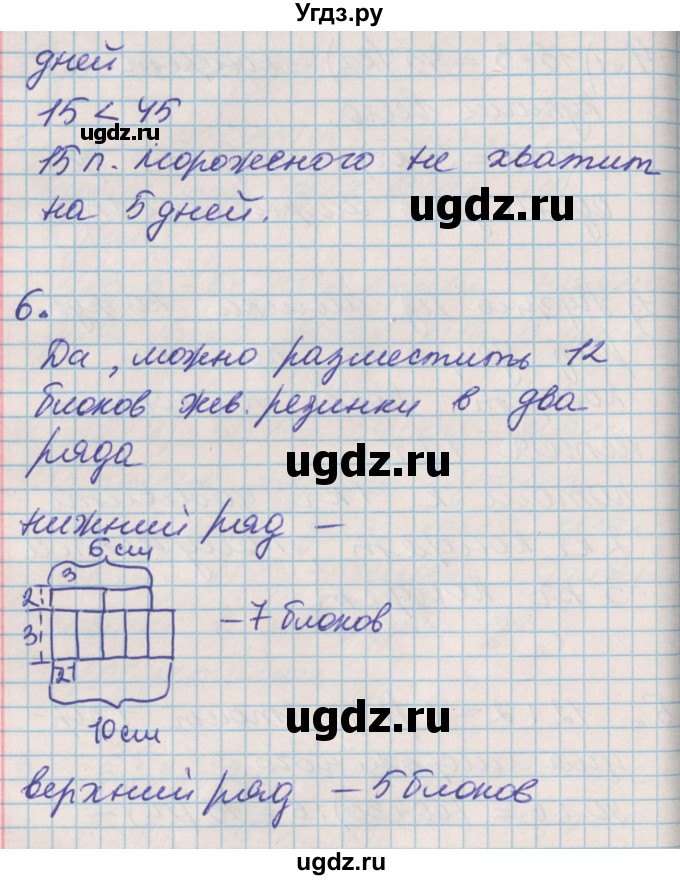 Угдз.ру
дней
15 < 45
ugdz.ru
15 п. мороженого не хватит
ugdz.ru
на 5 дней.
6.
Да, можно разместить 12
блоков жев. резинки в два
ряда
ugdz.ru
нижний ряд –
6 см
3
2
3
– 7 блоков
2
ugdz.ru
10 см
верхний ряд – 5 блоков
ugdz.ru